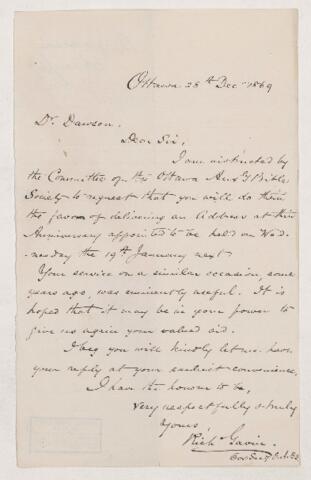 Ottawa 28th Dec 1869
Dr. Dawson.
Dear Sir,
I am instructed by
the Committee of the Ottawa Auxy Bible
Society to request that you will do them
the favor of delivering an Address at their
Anniversary appointed to be held on Wed-
nesday the 19th January next
Your service on a similar occasion, some
years ago, was eminently useful. It is
hoped that it may be in your power to
give us again your valued aid.
I beg you will kindly let me have
your reply at your earliest convenience.
I have the honour to be,
Very respectfully & truly
Yours,
Rich Gavin